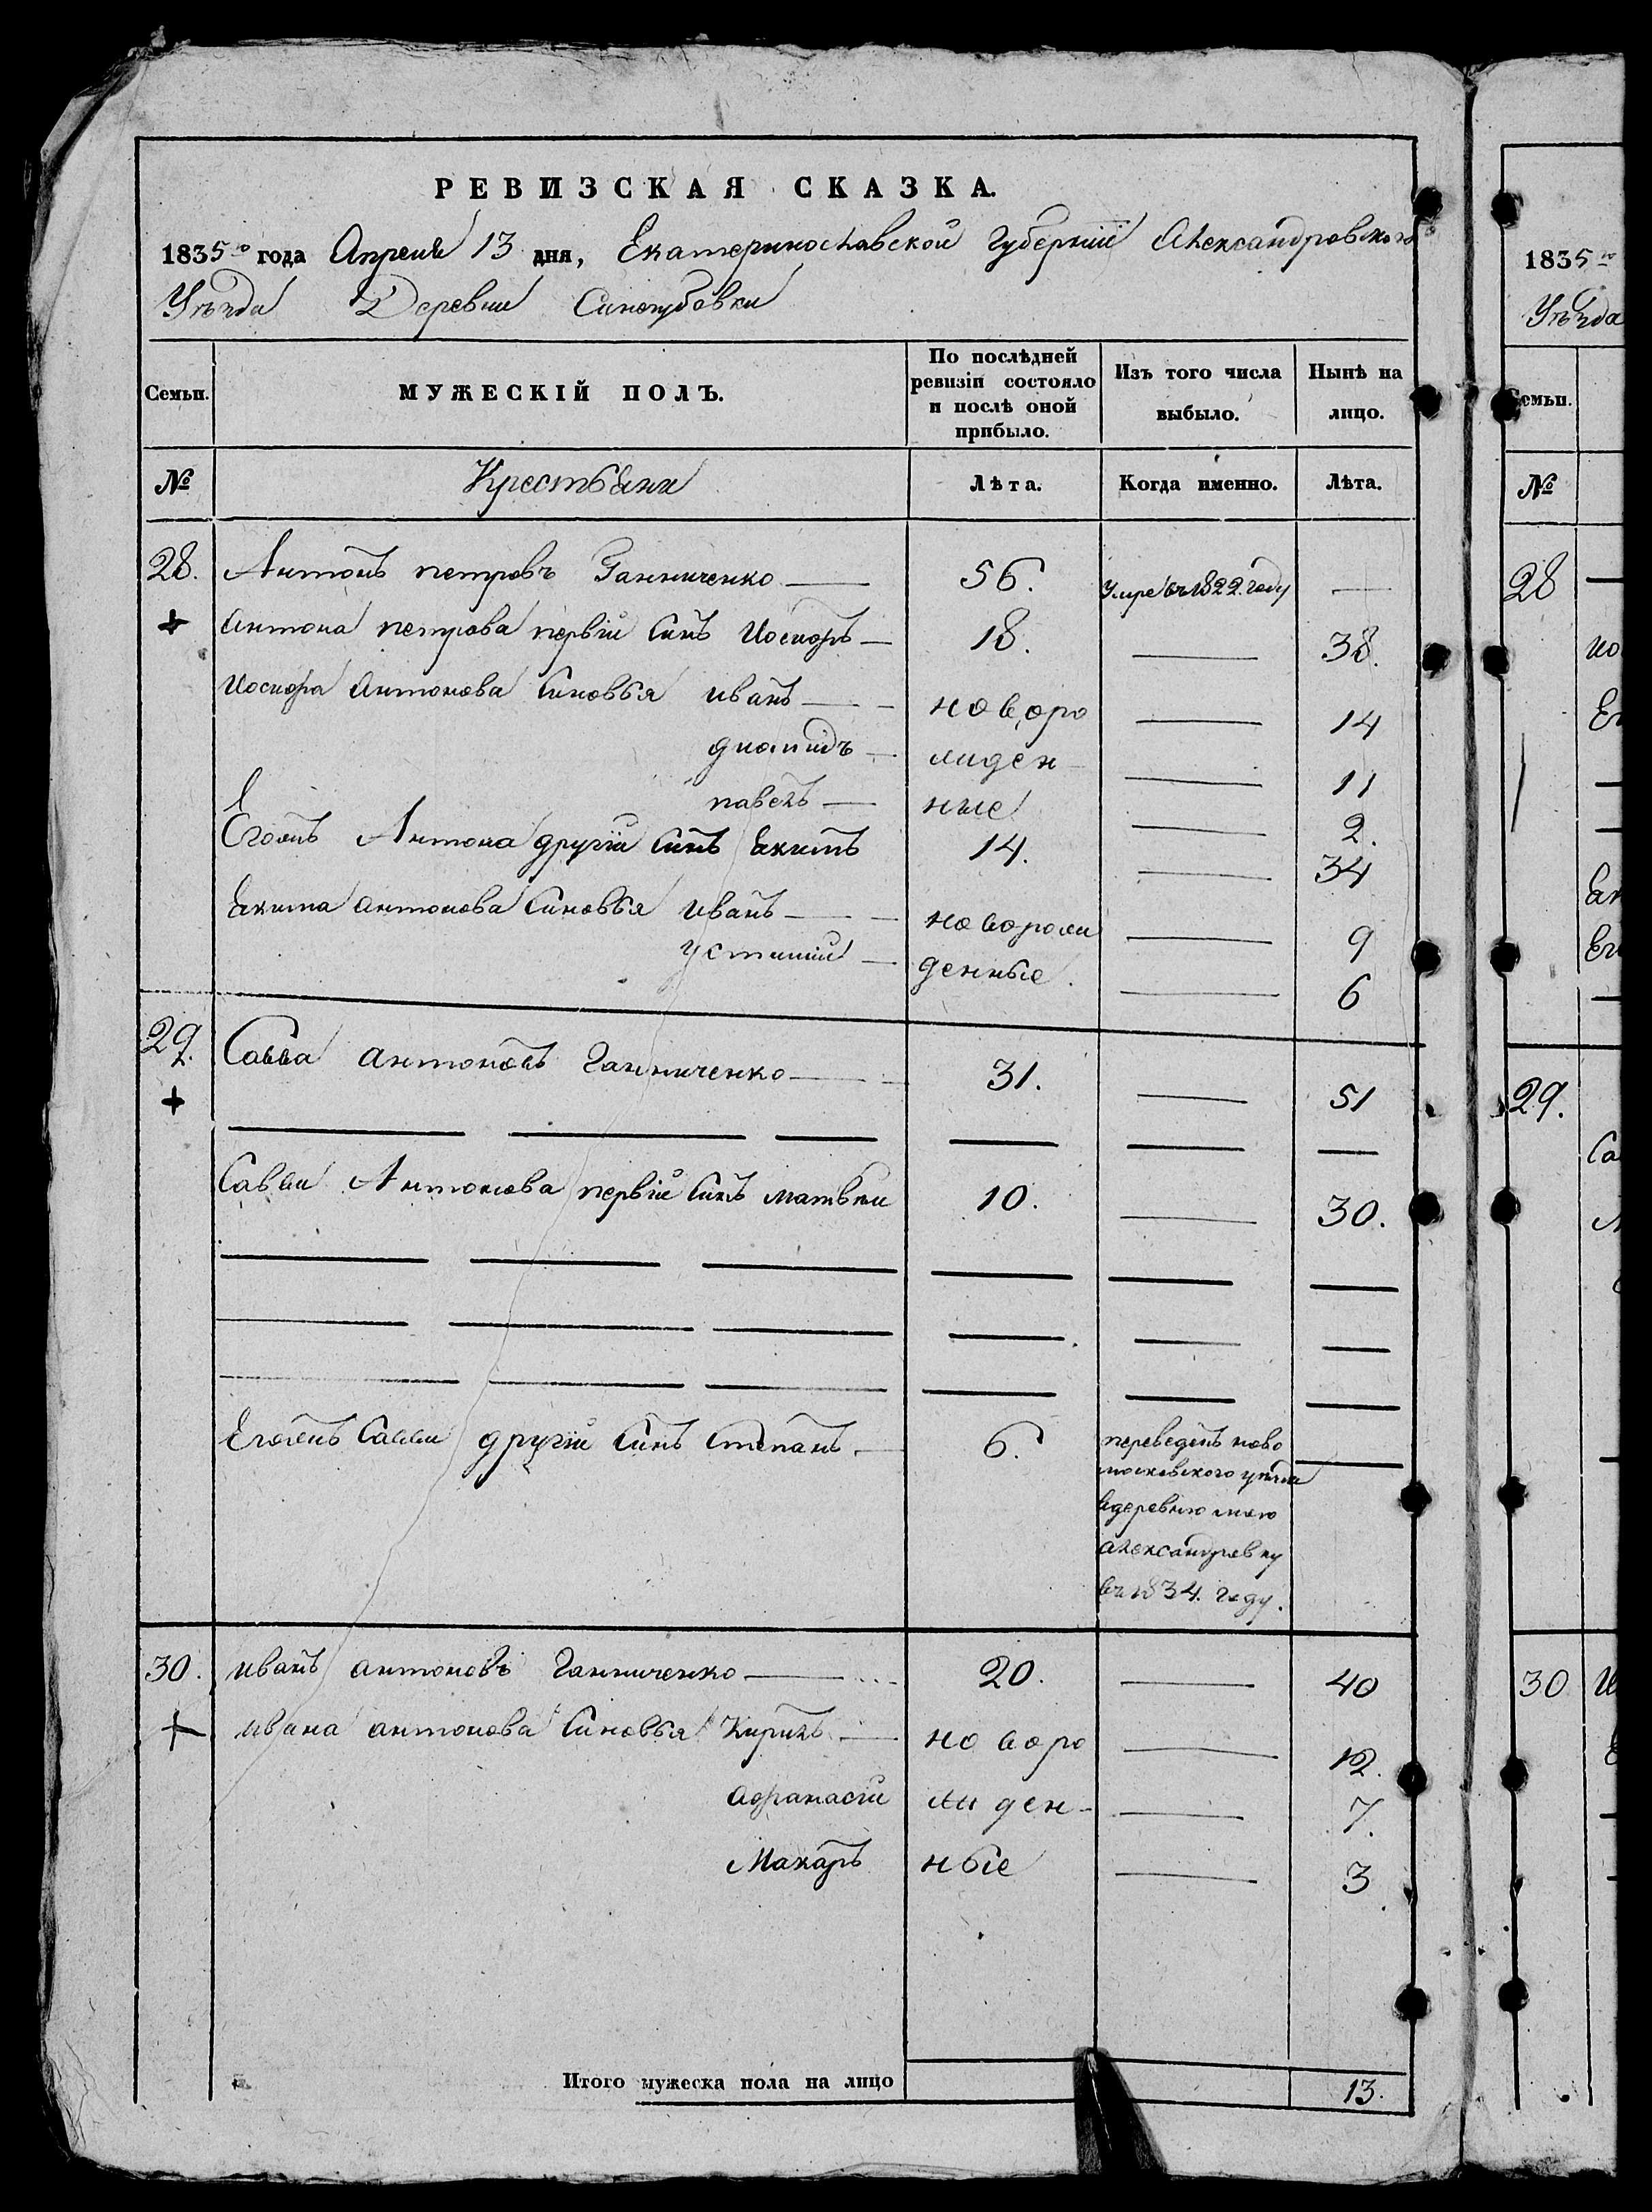 РЕВИЗСКАЯ СКАЗКА.
1835го года Апреля 13 дня, Екатеринославской Губернiи Александровского
Уѣзда Деревни Синегубовки
Семьи. МУЖЕСКІЙ ПОЛЪ. По послѣдней ревизіи состояло и послѣ оной прибыло. Изъ того числа выбыло. Нынѣ на лицо.
№ Крестьяни Лѣта. Когда именно. Лѣта.
28. Антонъ петровъ Ганниченко — 56. Умре въ 1822. году —
+ Антона петрова первiй Синъ Иосифъ — 18. — 38.
Иосифа Антонова Синовья иванъ — новоро — 14
диомидъ — жден — 11
павелъ — ние — 2.
Егожъ Антона другiй Синъ Екимъ 14. — 34
Екима антонова Синовья иванъ — новорож — 9
устиній — денные. — 6
29. Савва антоновъ Ганниченко — 31. — 51
+
Саввы Антонова первiй Синъ матвѣй 10. — 30.
Егожъ Саввы другiй Синъ Степанъ — 6. переведенъ ново —
московского уѣзда
вдеревню мою
александровку
въ 1834. году.
30. иванъ антоновъ Ганниченко — 20. — 40
+ ивана антонова Синовья Кирилъ — новоро — 12.
Афанасiй жден- — 7.
Макаръ ные — 3
Итого мужеска пола на лицо 13.
1835го
Уѣзда
Семьи.
№
28
29.
30